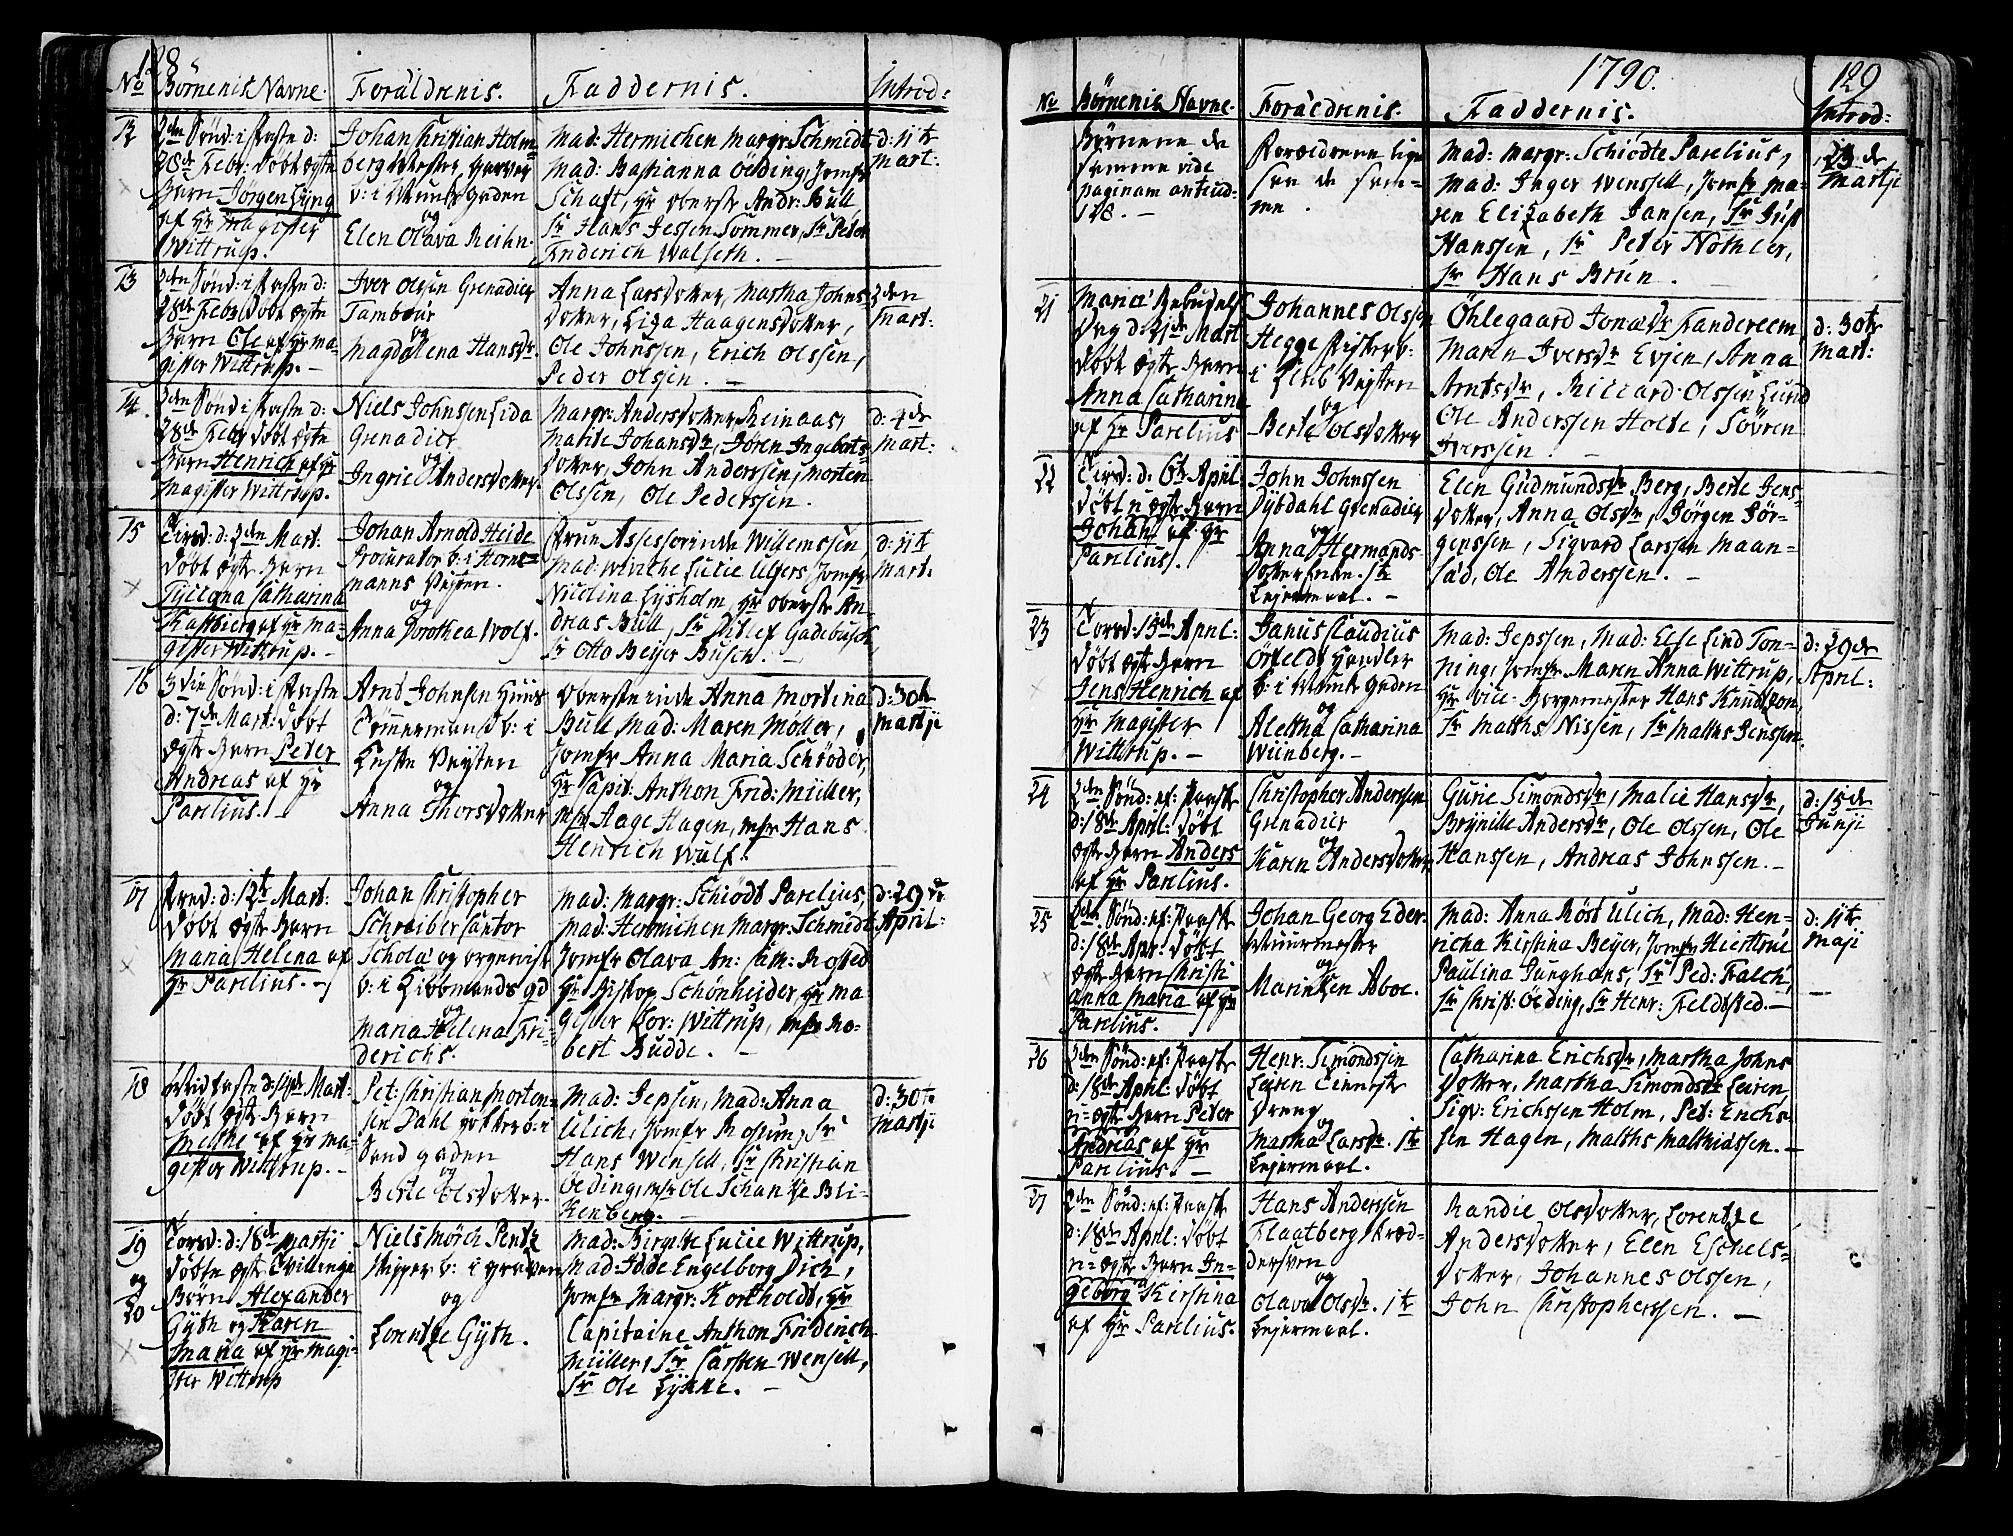 128
No Børnenis Navne. Forældrenis. Faddernis. Introd:
12
2den Sønd: i Faste d:
28de Febr: Døbt Ægte
Barn Jørgen Lyng
af Hr Magister
Wittrup.
Johan Christian Holm-
berg Mester Garver
b: i Munke Gaden
og
Elen Olava Reihn.
Mad: Hermichen Margr: Schmidt
Mad: Bastianna Öelding, Jomfr
Schaft, Hr Oberste Andr: Bull
Sr Hans Jessen Sommer, Sr Peter
Friderich Walseth. —
d: 11te
Mart:
13
2den Sønd: i Faste d:
28de Febr Døbt Ægte
Barn Ole af Hr Ma-
gister Wittrup. —
Iver Olsen Grenadier
Tambour
og
Magdalena Hansdr.
Anna Larsdotter, Martha Johns-
dotter, Liza Haagensdotter,
Ole Johnssen, Erich Olssen,
Peder Olssen. —
2den
Mart:
14.
2den Sønd i Faste d:
28de Febr Døbt Ægte
Barn Henrich af Hr
Magister Wittrup.
Niels Johnsen Lida
Grenadier
og
Ingrie Andersdotter.
Margr: Andersdotter Reinaas,
Marite Johansdr, Jøren Ingebrts-
dotter, John Anderssen, Morten
Olssen, Ole Pederssen.
d: 4de
Mart:
15
Tirsd: d: 2den Mart:
Døbt Ægte Barn
Tyllgna Catharina
Kastberg af Hr Ma-
gister Wittrup. —
Johan Arnold Heide
Procurator b: i Horne-
manns Veyten.
og
Anna Dorothea Wolf.
Frue Assessorinde Willemssen
Mad: Winche Lucie Ulfers, Jomfr
Nicolina Lysholm, Hr Oberste An-
dreas Bull, Sr Ditlef Gadebusch,
Sr Otto Beyer Busch. —
d: 11te
Mart:
16
3die Sønd: i Faste
d: 7de Mart: Døbt
Ægte Barn Peter
Andreas af Hr
Parelius. —
Arnd Johnsen Huus
Tømmermand b: i
Veyten
og
Anna Thorsdotter
Oberstinde Anna Mordina
Bull Mad: Maren Möller,
Jomfr Anna Maria Schröder,
Hr Capit: Anthon Frid: Müller,
Msr Aage Hagen, Msr Hans
Henrich Wulf.
d: 30te
Martji
17
Fred: d: 12te Mart:
Døbt Ægte Barn
Maria Helena af
Hr Parelius. —
Johan Christopher
Schreiber Cantor
Scholæ og Organist
b: i Kiöbmands gd
og
Maria Helena Fri-
derichs.
Mad: Margr: Schiödt Parelius,
Mad: Hermichen Margr: Schmidt
Jomfr Olava An: Cath: Rosted
Hr Biskop Schönheider, Hr Ma-
gister Lor: Wittrup, Msr Ro-
bert Budde. —
d: 29de
April:
18
Midfaste d: 14de Mart:
Døbt Ægte Barn
Methe af Hr Ma-
gister Wittrup. —
Pet: Christian Morten-
sen Dahl b: i
Sand gaden
og
Berte Olsdotter.
Mad: Jepsen, Mad: Anna
Ulich, Jomfr Rosum, Sr
Hans Wensell, Sr Christian
Oelding, Msr Ole Schanke Bli-
kenberg. —
d: 30te
Martji
19
og
20
Torsd: d: 18de Martji
Døbte Ægte Tvillinge
Börn Alexander
Gyth og Karen
Maria af Hr Magi-
ster Wittrup
Niels Mörch Pentz
Skipper b: i Graven
og
Lorentze Gyth.
Mad: Birgitte Lucie Wittrup,
Mad: Idde Engelborg Dick,
Jomfr Margr: Kortholdt, Hr
Capitaine Anthon Friderich
Müller, Sr Carsten Wensell,
Sr Ole Lykke. —
1790.
129
No Børnenis Navne. Forældrenis. Faddernis. Introd:
Børnene de
samme vide
paginam anteced-
128. —
Forældrene lige
saa de sam-
me.
Mad: Margr: Schiödte Parelius,
Mad: Inger Wensell, Jomfr Ma-
ren Elizabeth Jansen, Sr Just
Hanssen, Sr Peter Nothler,
Sr Hans Brun.
23de
Martji
21
Mariæ Bebudels
Dag d: 25de Mart
Døbt Ægte Barn
Anna Catharina
af Hr Parelius
Johannes Olssen
Hegge Fisker b:
i Veyten
og
Berte Olsdotter
Öhlegaard Jonædr Fandereem
Maren Iversdr Evjen, Anna
Arntsdr, Riccard Olssen Lund
Ole Anderssen Holte, Sövren
Iverssen. —
d: 30te
Mart:
22
Tirsd: d: 6te April
Døbt u Ægte Barn
Johan af Hr
Parelius.
John Johnssen
Dybdahl Grenadier
og
Anna Hermands-
dotter Enke. 1te
Lejermaal. —
Elen Gudmundsdr Berg, Berte Jens-
dotter, Anna Olsdr, Jörgen Jör-
genssen, Sigvard Larssen Maan-
sad, Ole Anderssen. —
23
Torsd: 15de April:
Døbt Ægte Barn
Jens Henrich af
Hr Magister
Wittrup. —
Janus Claudius
Örfeldt Handler
b: i Munke Gaden
og
Alethe Catharina
Wiinberg. —
Mad: Jepssen, Mad: Else Lind Ton-
ning, Jomfr Maren Anna Wittrup,
Hr Vice-Borgemester Hans Knudtzon,
Sr Matths Nissen, Sr Matths Jenssen.
d: 29de
April:
24
2den Sønd: ef: Paaske
d: 18de April: Døbt
Ægte Barn Anders
af Hr Parelius.
Christopher Anderssen
Grenadier
og
Karen Andersdotter
Gurie Simondsdr, Malie Hansdr,
Brynille Andersdr, Ole Olssen, Ole
Hanssen, Andreas Johnssen. —
d: 15de
Junji
25
2den Sønd: ef: Paaske
d: 18de Apr: Døbt
Ægte Barn Christi
anna Maria af Hr
Parelius.
Johan Georg Eder
Muurmester
og
Marinken Aboe.
Mad: Anna Röst Ulich, Mad: Hen-
richa Kirstina Beyer, Jomfr Hiertrue
Paulina Junghans, Sr Ped: Falch,
Sr Christ: Öelding, Sr Henr: Feldtsted. —
d: 11te
Maji
26
2den Sønd: ef: Paaske
d: 18de April: Døbt
u=Ægte Barn Peter
Andreas af Hr
Parelius. —
Henr: Simondssen
Leiren Tieneste
Dreng
og
Martha Larsdr. 1te
Lejermaal.
Catharina Erichsdr, Martha Johns
dotter, Martha Simondsdr Leiren
Sigv: Erichssen Holm, Pet: Erichs-
sen Hagen, Matths Mathiassen. —
27
2den Sønd: ef: Paaske
d: 18de April: Døbt
u=Ægte Barn In-
geborg Kirstina
af Hr Parelius.
Hans Anderssen
Flaatberg Skræd-
dersven
og
Olava Olsdr. 1te
Lejermaal.
Randie Olsdotter, Lorentze
Andersdotter, Elen Eschels-
dotter, Johannes Olssen,
John Christopherssen. —